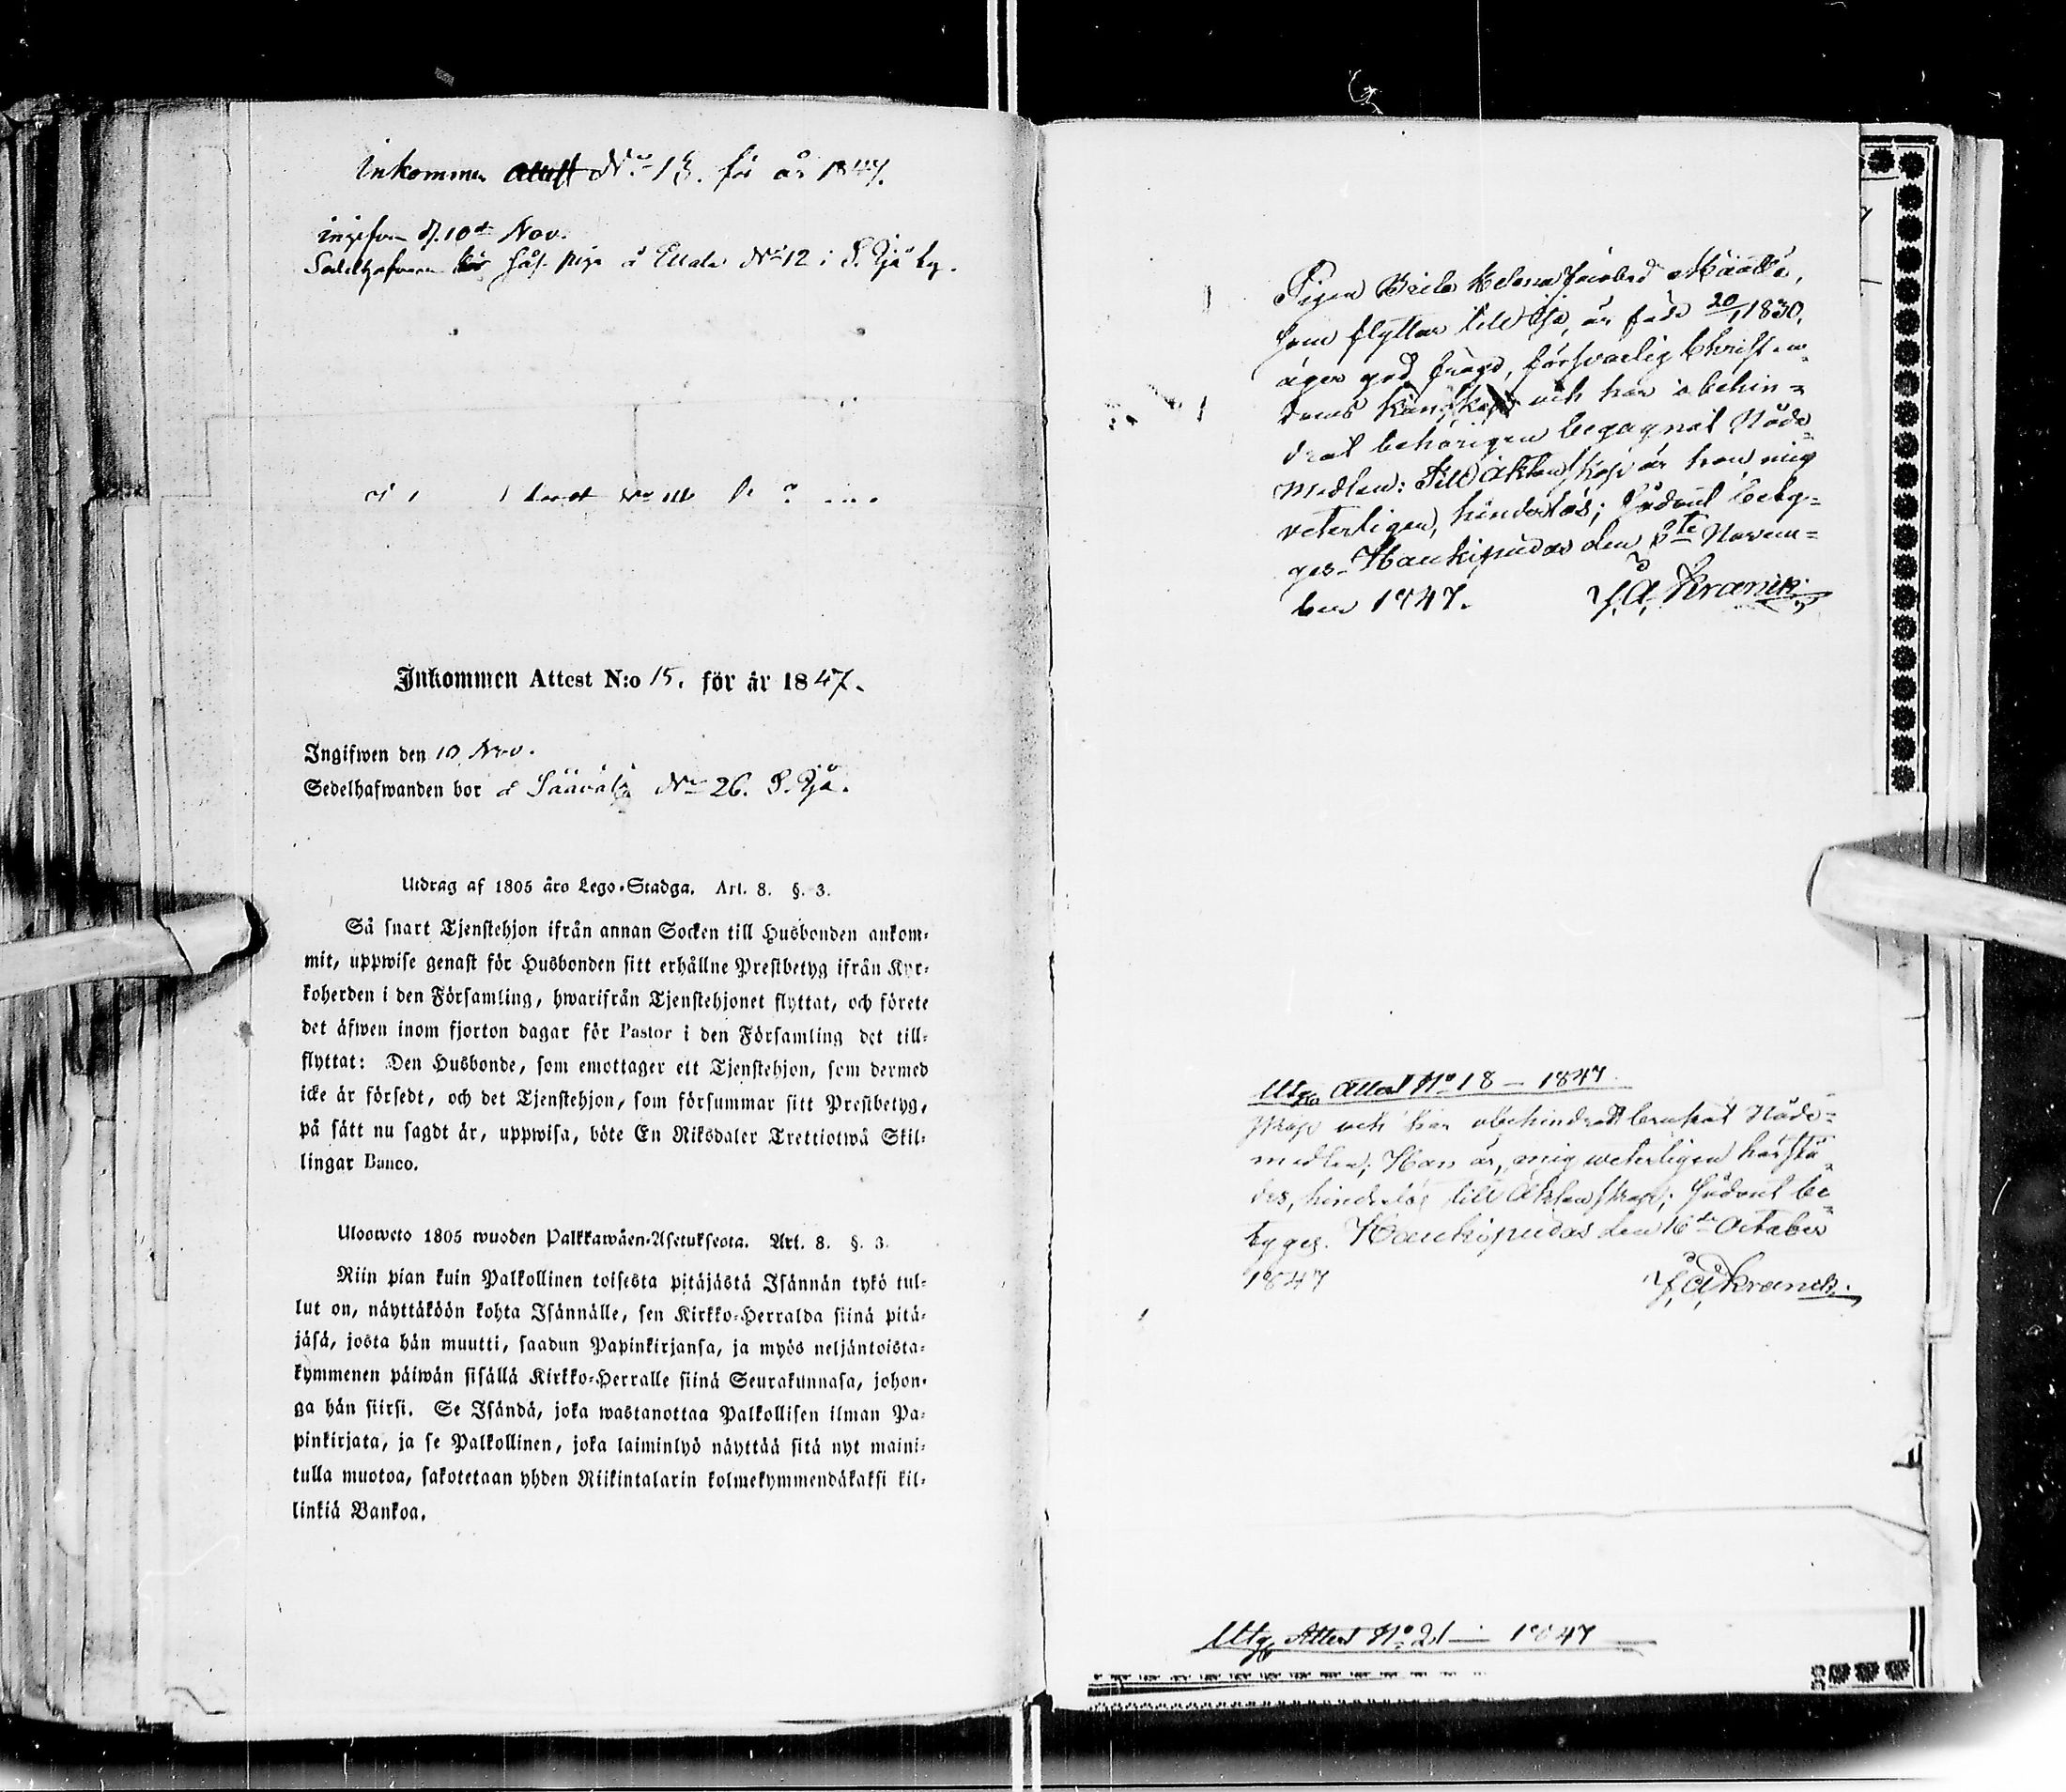 Inkommen Attest No 13. för år 1847.
ingifven d. 10de Nov.
Sedelhafvaren bör såsom piga å Ellala No 12 i S. Ijå by.
Inkommen Attest N:o 15. för år 1847.
Ingifwen den 10 Nov.
Sedelhafwanden bor å Säävälä No 26. S. Ijå.
Utdrag af 1805 åro Lego-Stadga. Art. 8. §. 3.
Så snart Tjenstehjon ifrån annan Socken till Husbonden ankom-
mit, uppwise genast för Husbonden sitt erhållne Prestbetyg ifrån Kyr-
koherden i den Församling, hwarifrån Tjenstehjonet flyttat, och förete
det äfwen inom fjorton dagar för Pastor i den Församling det till-
flyttat: Den Husbonde, som emottager ett Tjenstehjon, som dermed
icke är försedt, och det Tjenstehjon, som försummar sitt Prestbetyg,
på sätt nu sagdt är, uppwisa, böte En Riksdaler Trettiotwå Skil-
lingar Banco.
Ulosweto 1805 wuoden Palkkawäen-Asetuksesta. Art. 8. §. 3.
Niin pian kuin Palkollinen toisesta pitäjästä Isännän tykö tul-
lut on, näyttäköön kohta Isännälle, sen Kirkko-Herralda siinä pitä-
jäsä, josta hän muutti, saadun Papinkirjansa, ja myös neljäntoista-
kymmenen päiwän sisällä Kirkko-Herralle siinä Seurakunnasa, johon-
ga hän siirsi. Se Isändä, joka wastanottaa Palkollisen ilman Pa-
pinkirjata, ja se Palkollinen, joka laiminlyö näyttää sitä nyt maini-
tulla muotoa, sakotetaan yhden Riikintalarin kolmekymmendäkaksi kil-
linkiä Bankoa.
Pigan Brita Helena Jacobsd Määttä,
som flyttar till Ijo, är född 20/1 1830,
äger god frägd, försvarlig Christen-
doms kunskap och har obehin-
drat behörigen begagnat Nåde-
medlen: Till äktenskap är hon, mig
veterligen, hinderlös; Sådant bety-
ges. Haukipudas den 3te Novem-
ber 1847. J. A. Kranck
Utg. Attest No 18 - 1847.
skap och har obehindrat brukat Nåde-
medlen; Han är, mig weterligen härstä-
des, hinderlös till Äktenskap; Sådant be-
tyges. Haukipudas den 16de October
1847 J. A. Kranck.
Utg. Attest No 21 - 1847